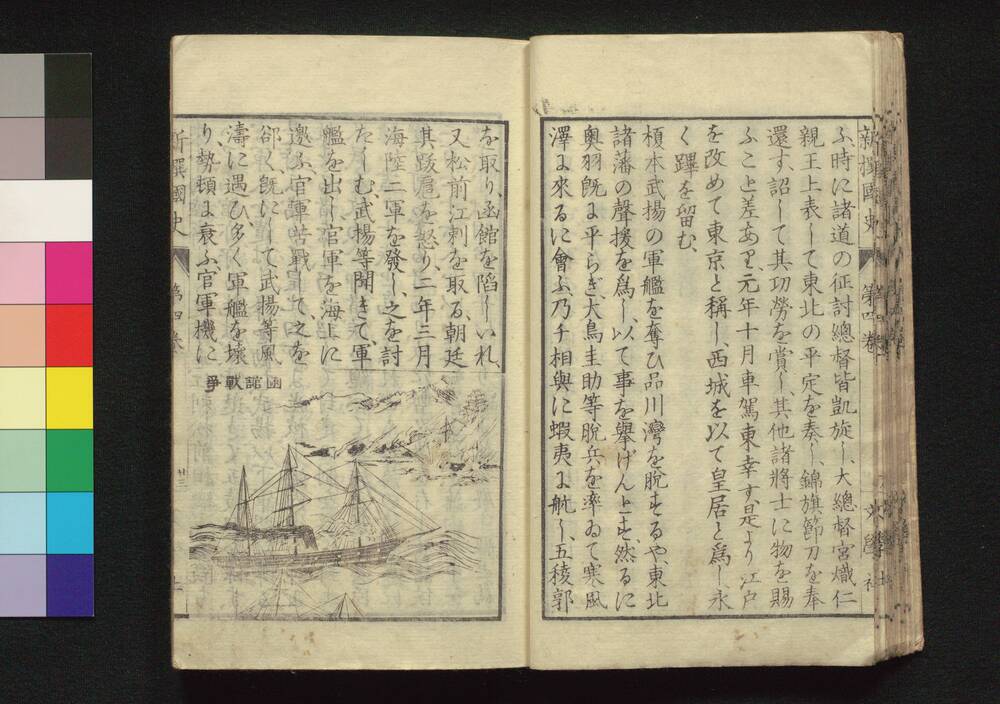 ふ、時に諸道の征討總督皆凱旋し、大總督宮熾仁
親王上表して東北の平定を奏し、錦旗節刀を奉
還す、詔して其功勞を賞し、其他諸將士に物を賜
ふこと差あり、元年十月車駕東幸す、是より江戸
を改めて東京と稱し、西城を以て皇居と爲し永
く蹕を留む、
榎本武揚の軍艦を奪ひ品川灣を脱するや、東北
諸藩の聲援を爲し、以て事を擧げんとす、然るに
奥羽既に平らぎ、大鳥圭助等脱兵を率ゐて寒風
澤に來るに會ふ、乃チ相與に蝦夷に航し、五稜郭
を取り、函館を陷しいれ、
又松前江刺を取る、朝廷
其跋扈を怒り、二年三月
海陸二軍を發し之を討
たしむ武揚等聞きて、軍
艦を出し官軍を海上に
邀ふ、官軍苦戰して、之を
郤く既にして武揚等風
濤に遇ひ多く軍艦を壞
り、勢頓に衰ふ官軍機に
函館戰爭
新撰國史
第四卷
文學社
新撰國史
第四卷
廿三